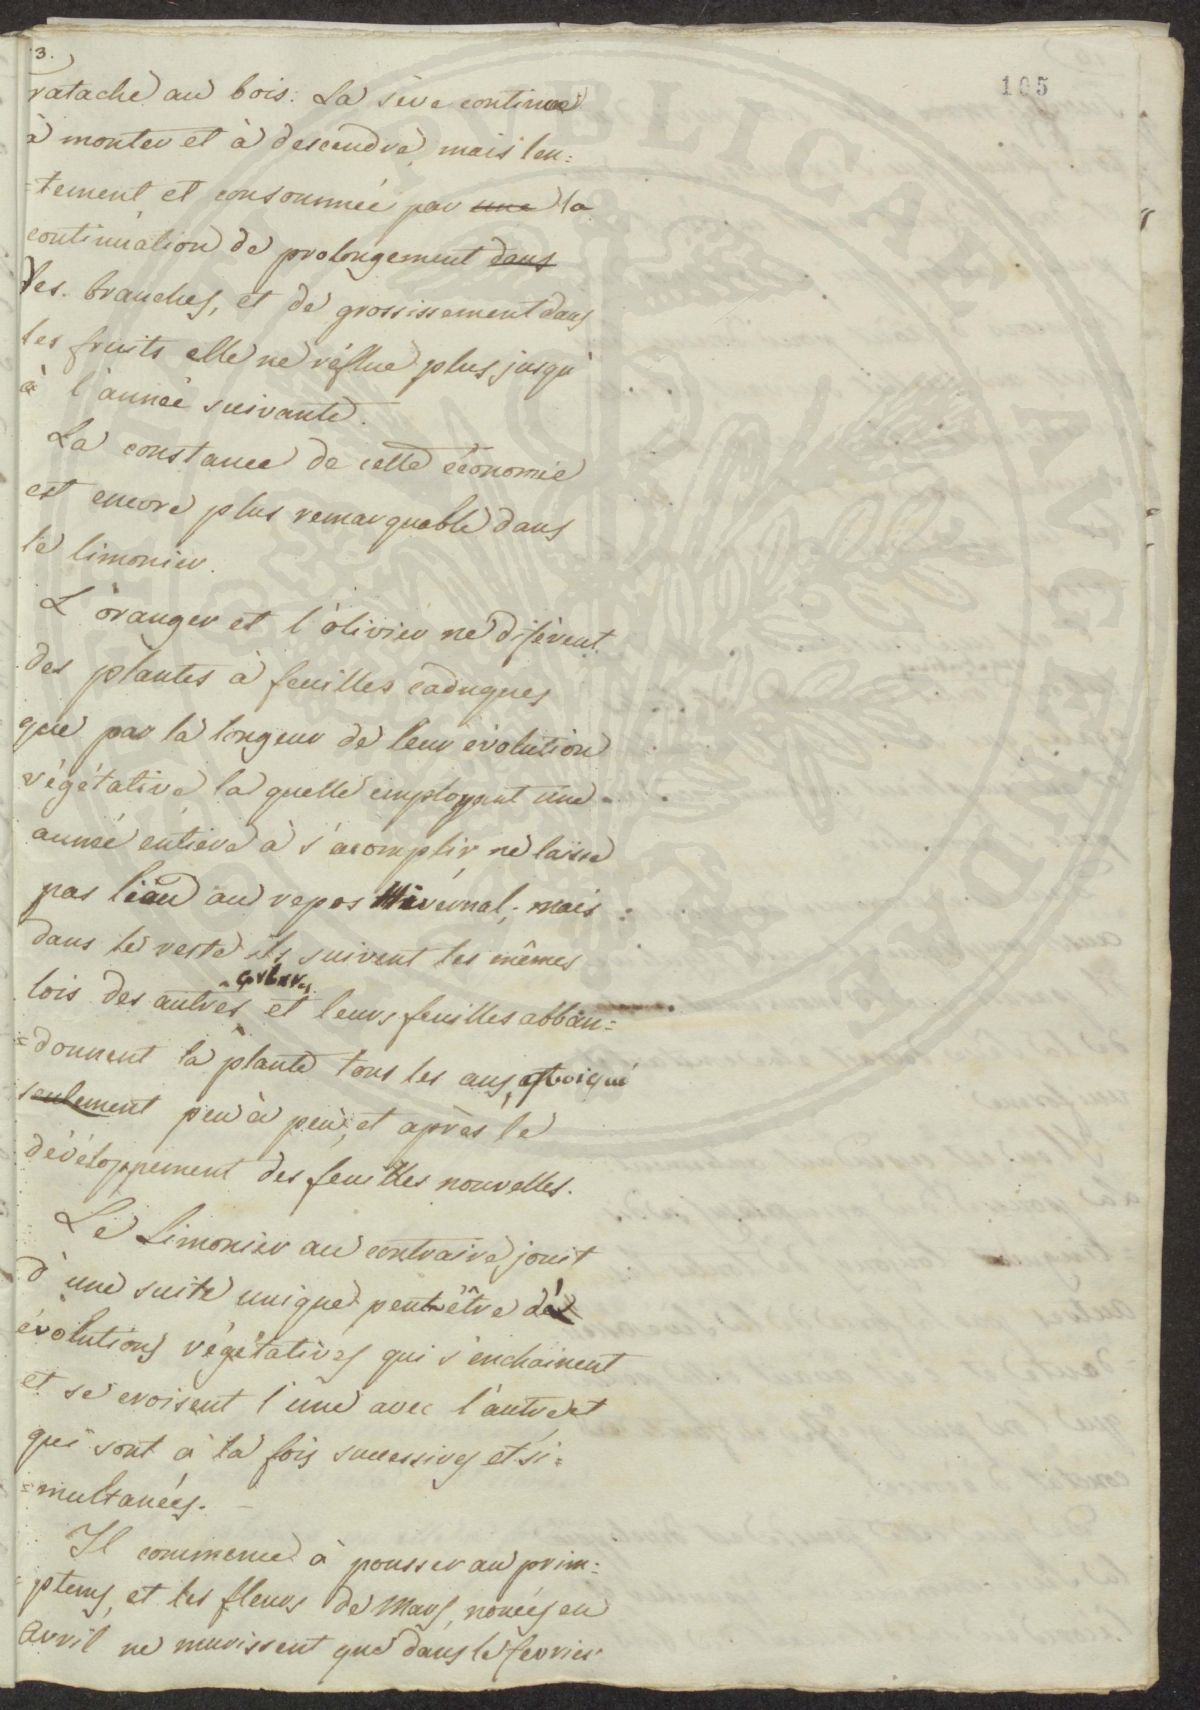 3.
105
ratache au bois. La sève continue
à monter et à descendre, mais len=
=tement et consommée par une la
continuation de prolongement dans
les branches, et de grossissement dans
les fruits elle ne réflue plus, jusqu'
à l'année suivante.
La constance de cette économie
est encore plus remarquable dans
le limonier.
L'oranger et l'olivier ne difèrent
des plantes à feuilles caduques
que par la longeur de leur évolution
végétative la quelle employant une
année entiere à s'acomplir ne laisse
pas lieu au repos Hivérnal; mais
dans le reste ils suivent les mêmes
arbres
lois des autres et leurs feuilles abban=
=donnent la plante tous les ans, quoique
seulement peu à peu, et après le
dévéloppement des feuilles nouvelles.
Le Limonier au contraire, jouit
d'une suite unique peut être dés
évolutions végétatives qui s'enchainent
et se croisent l'une avec l'autre et
qui sont à la fois successives et si=
=multanées. -
Il commence à pousser au prim=
ptems, et les fleurs de Mars, nouées en
Avril ne murissent que dans le fevrier
PVBLICA AVGENDAE